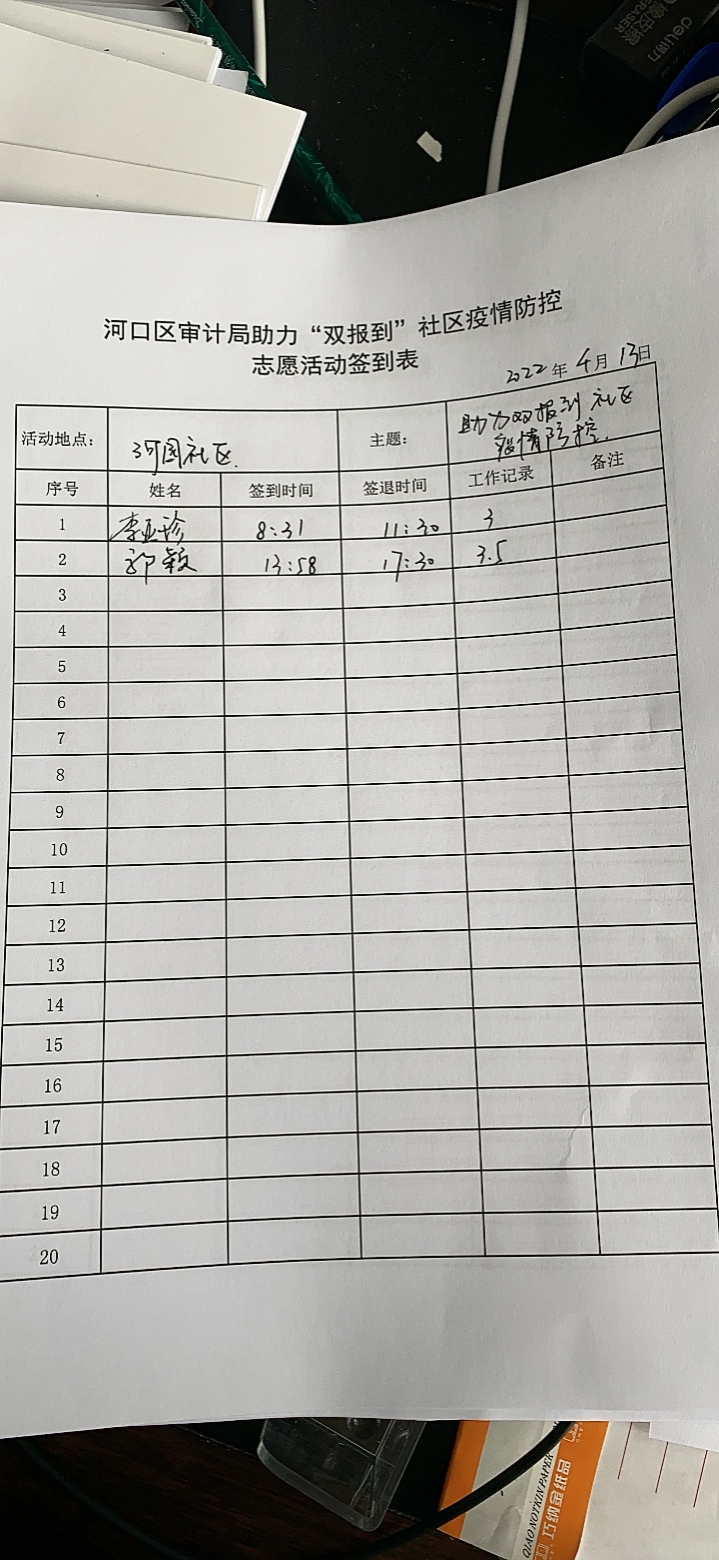 deli得力
ERASER
河口区审计局助力“双报到”社区疫情防控
志愿活动签到表
2022年4月13日
活动地点: 河园社区. 主题: 助力双报到社区
疫情防控.
序号 姓名 签到时间 签退时间 工作记录 备注
1 李亚珍 8:31 11:30 3
2 郭颖 13:58 17:30 3.5
3
4
5
6
7
8
9
10
11
12
13
14
15
16
17
18
19
20
QIAO NOTKIN PAPER